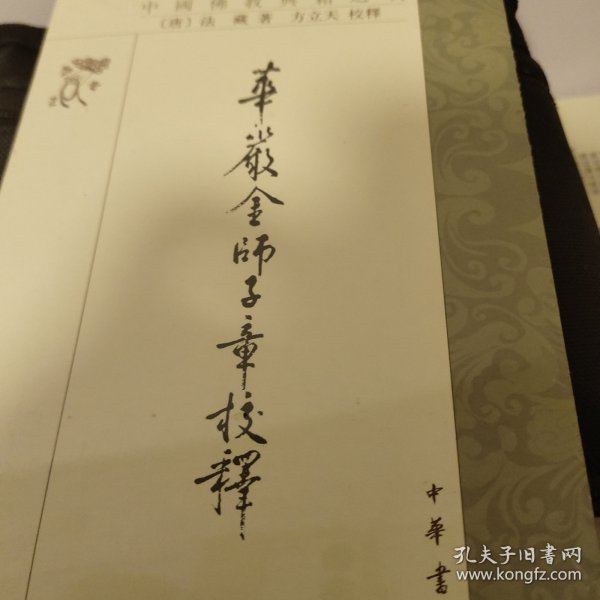 中國佛教典籍選
〔唐〕法藏著 方立天 校釋
華嚴金師子章校釋
中華書
孔夫子旧书网
www.kongfz.com